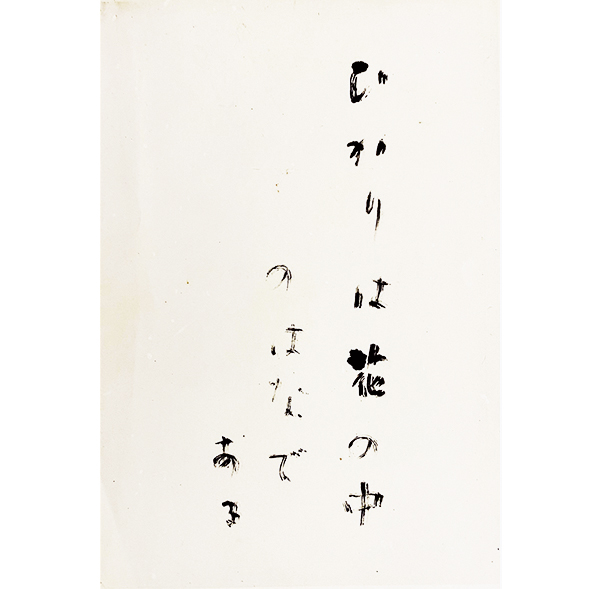 ひかりは花の中
のはなで
ある